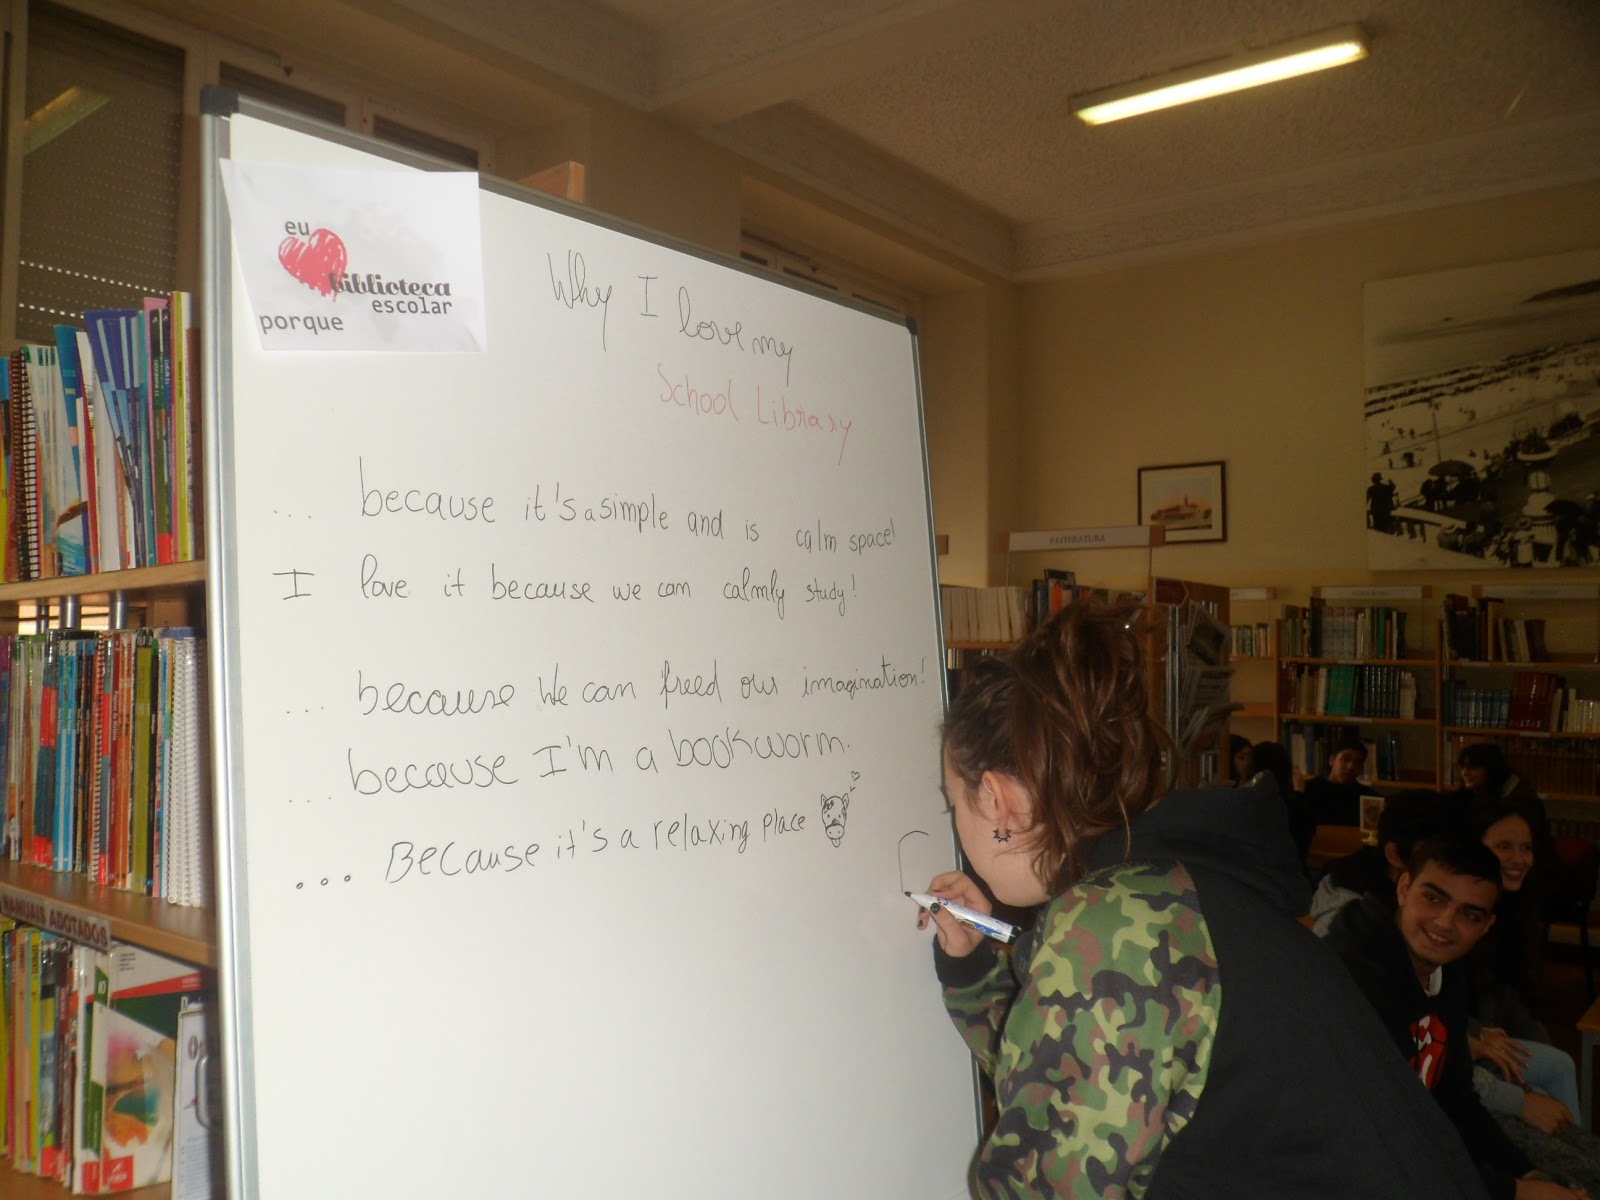 eu
biblioteca
escolar
porque
Why I love my
School Library
... because it's a simple and is calm space!
I love it because we can calmly study!
... because we can freed our imagination!
... because I'm a bookworm.
... Because it's a relaxing place
MANUAIS ADOTADOS
8 LITERATURA